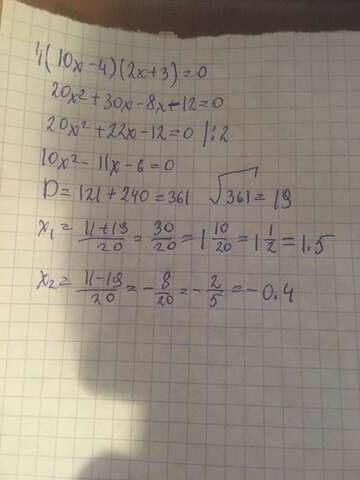 4(10x-4)(2x+3)=0
20x²+30x-8x-12=0
20x²+22x-12=0 |:2
10x²-11x-6=0
D=121+240=361 √361=19
x₁=11+19/20=30/20=1 10/20=1 1/2=1.5
x₂=11-19/20=-8/20=-2/5=-0.4